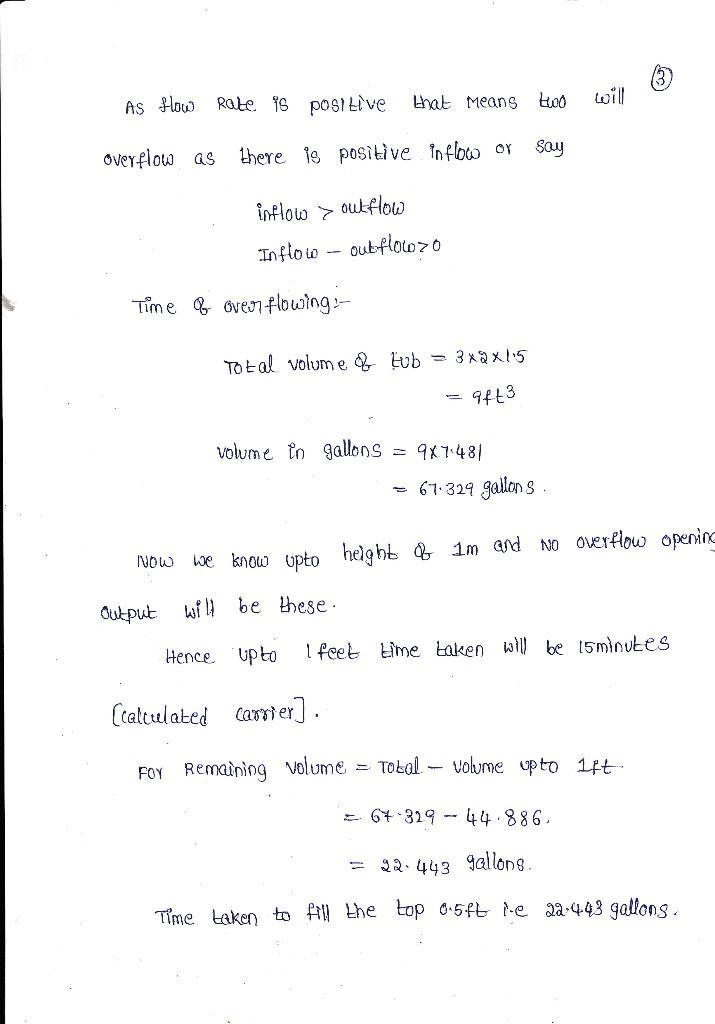 ③
As flow Rate is positive that Means too will
overflow as there is positive inflow or say
inflow > outflow
Inflow - outflow>0
Time of overflowing:-
Total volume of tub = 3x2x1.5
= 9ft3
volume in gallons = 9x7.481
= 67.329 gallons.
Now we know upto height of 1m and NO overflow opening
output will be these.
Hence upto 1 feet time taken will be 15minutes
[calculated carrier].
For Remaining volume = Total - volume upto 1ft.
= 67.329 - 44.886.
= 22.443 gallons.
Time taken to fill the top 0.5ft i.e 22.443 gallons.